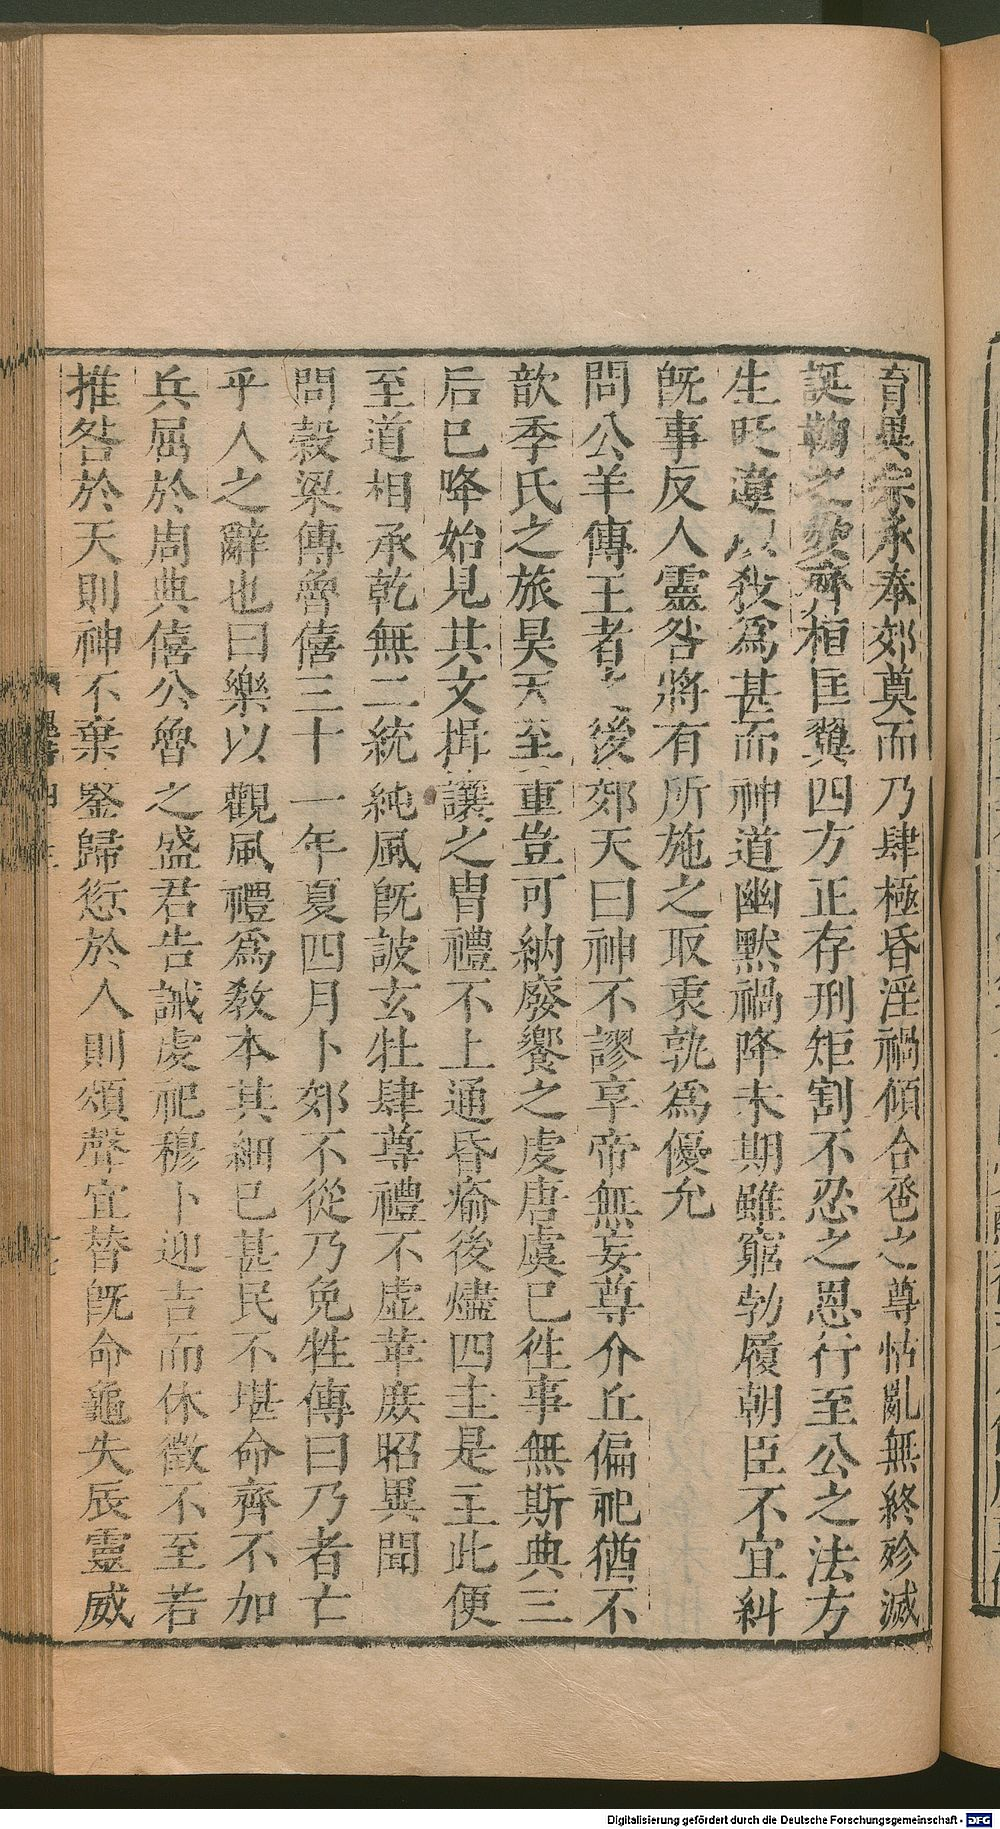 育異宗承奉郊奠而乃肆極昏淫禍傾合卺之尊怙亂無終殄滅
誕鞠之愛齊桓匡翼四方正存刑矩割不忍之恩行至公之法方
生旣違以殺爲甚而神道幽黙禍降未期雖窮勃履朝臣不宜糾
旣事反人靈咎將有所施之取衷孰爲優允
問公羊傳王者之後郊天曰神不謬享帝無妄尊介丘偏祀猶不
歆季氏之旅昊天至重豈可納廢饗之虔唐虞已徃事無斯典三
后已降始見其文揖讓之胄禮不上通昏瘉後燼四主是主此便
至道相承乾無二統純風旣詖玄牡肆尊禮不虚革庻昭異聞
問榖梁傳魯僖三十一年夏四月卜郊不從乃免牲傳曰乃者亡
乎人之辭也曰樂以觀風禮爲敎本其細已甚民不堪命齊不加
兵屈於周典僖公魯之盛君告誡虔祀穆卜迎吉而休徵不至若
推咎於天則神不棄鑒歸愆於人則頌聲宜替旣命龜失辰靈威
Digitalisierung gefördert durch die Deutsche Forschungsgemeinschaft - DFG